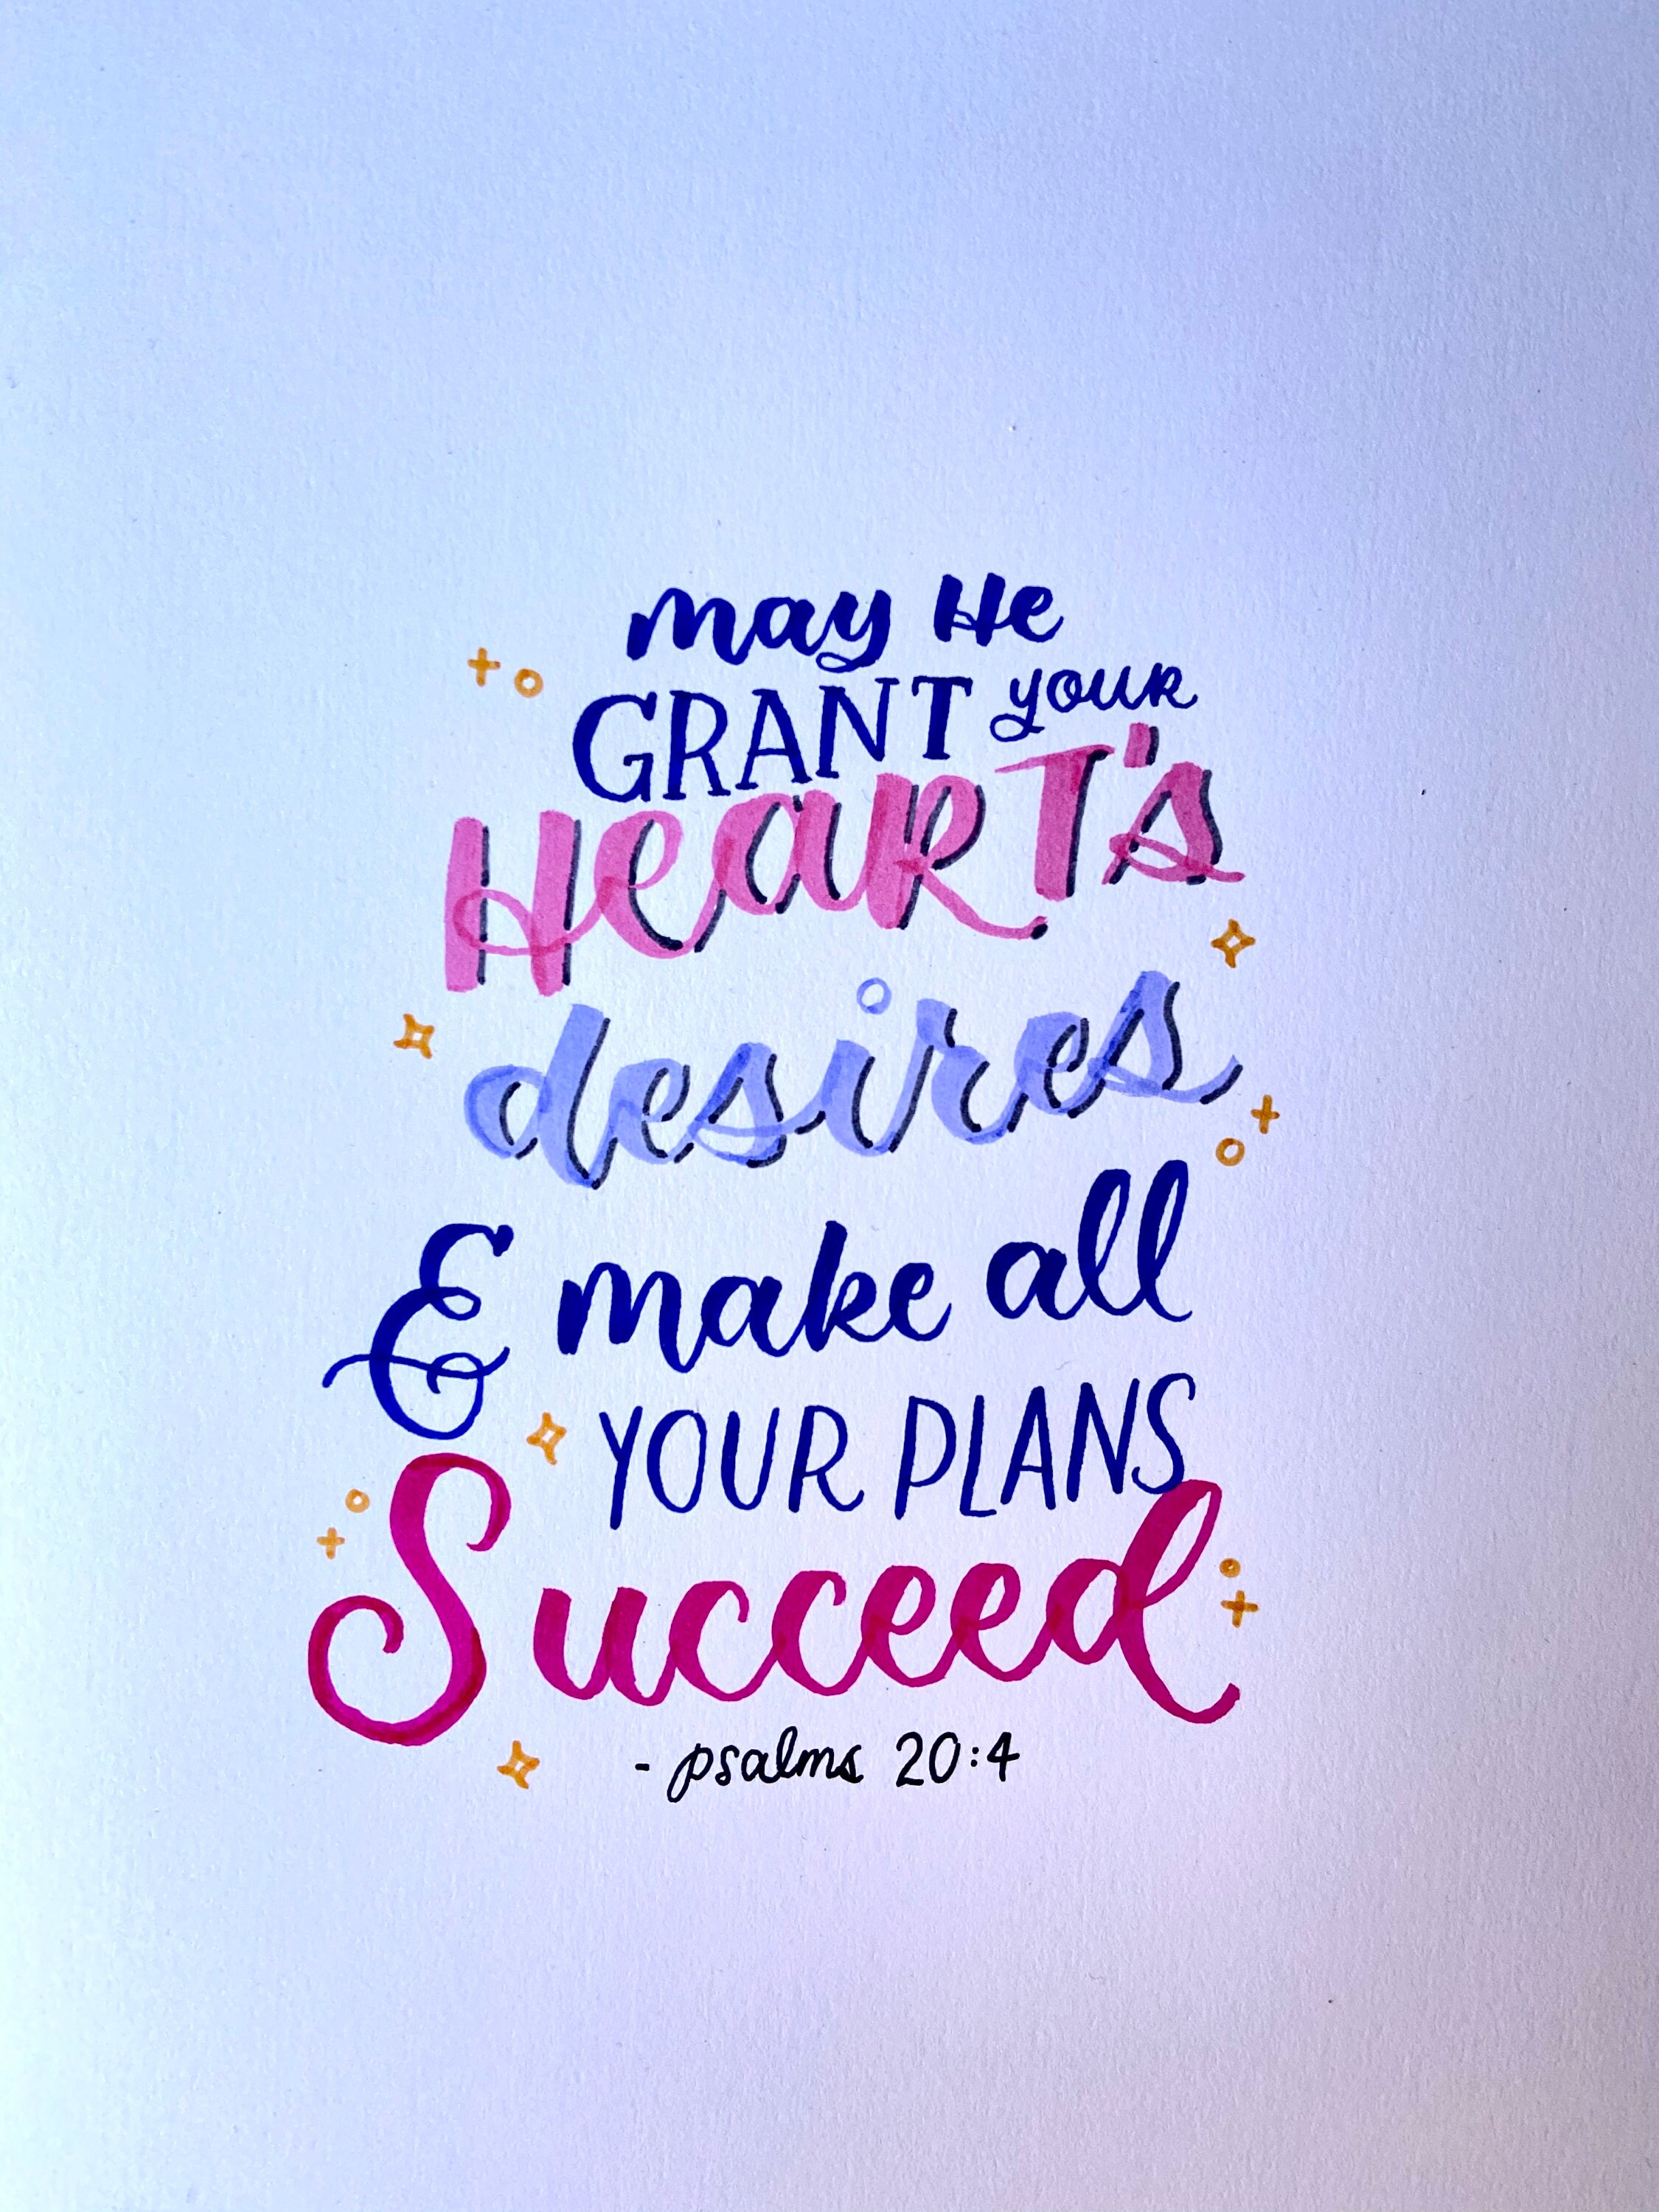 may He
GRANT your
HeaRT's
desires
& make all
YOUR PLANS
Succeed
- psalms 20:4